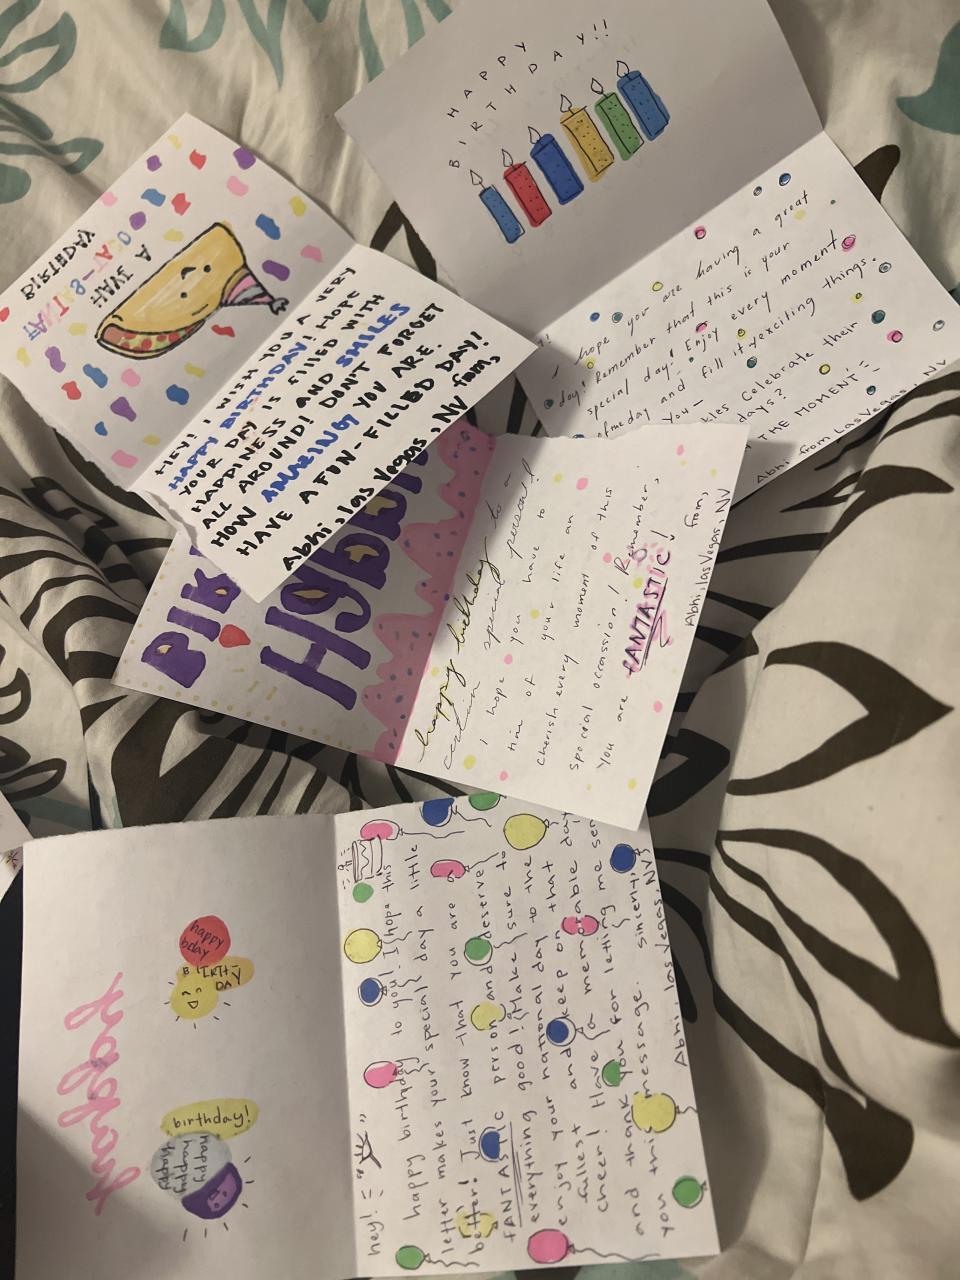 HAPPY
BIRTHDAY!!
hope you are having a great
day! Remember that this is your
special day! Enjoy every moment
day and fill it exciting things.
YOU-
Celebrate their
days?
THE MOMENT"=
Abhi from Las Vegas, NV
HAVE A
FANT-
BIRTHDAY
HEY! I WISH YOU A VERY
HAPPY BIRTHDAY! I HOPE
YOUR DAY IS FILLED WITH
HAPPINESS AND SMILES
ALL AROUND! DON'T FORGET
HOW AMAZING YOU ARE.
HAVE A FUN-FILLED DAY!
from,
Abhi, las Vegas, NV
happy birthday to a
special person!
i hope you have to
time of your life an
cherish every moment of this
special occassion! Remember,
you are
fANTASTIC!
from,
Abhi, las Vegas, NV
happy
bday
BIRTH
DAY
birthday!
happy
happy
happy
hey! =
happy birthday to you! I hope this
letter makes your special day a little
better! Just know that you are a
fANTASTIC person and deserve
everything good! Make sure to
enjoy your national day to the
fullest and keep on that
cheer! Have a memorable day
and thank you for letting me sen
you this message. sinierly,
Abhi, las Vegas, NV